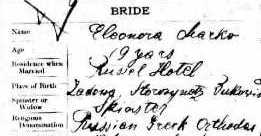 BRIDE
Name Eleonora Marko
Age 19 years
Residence when Married Russel Hotel
Place of Birth Zadowa, Storozynetz Bukowina
Spinster or Widow Spinster
Religious Denomination Russian Greek Orthodox